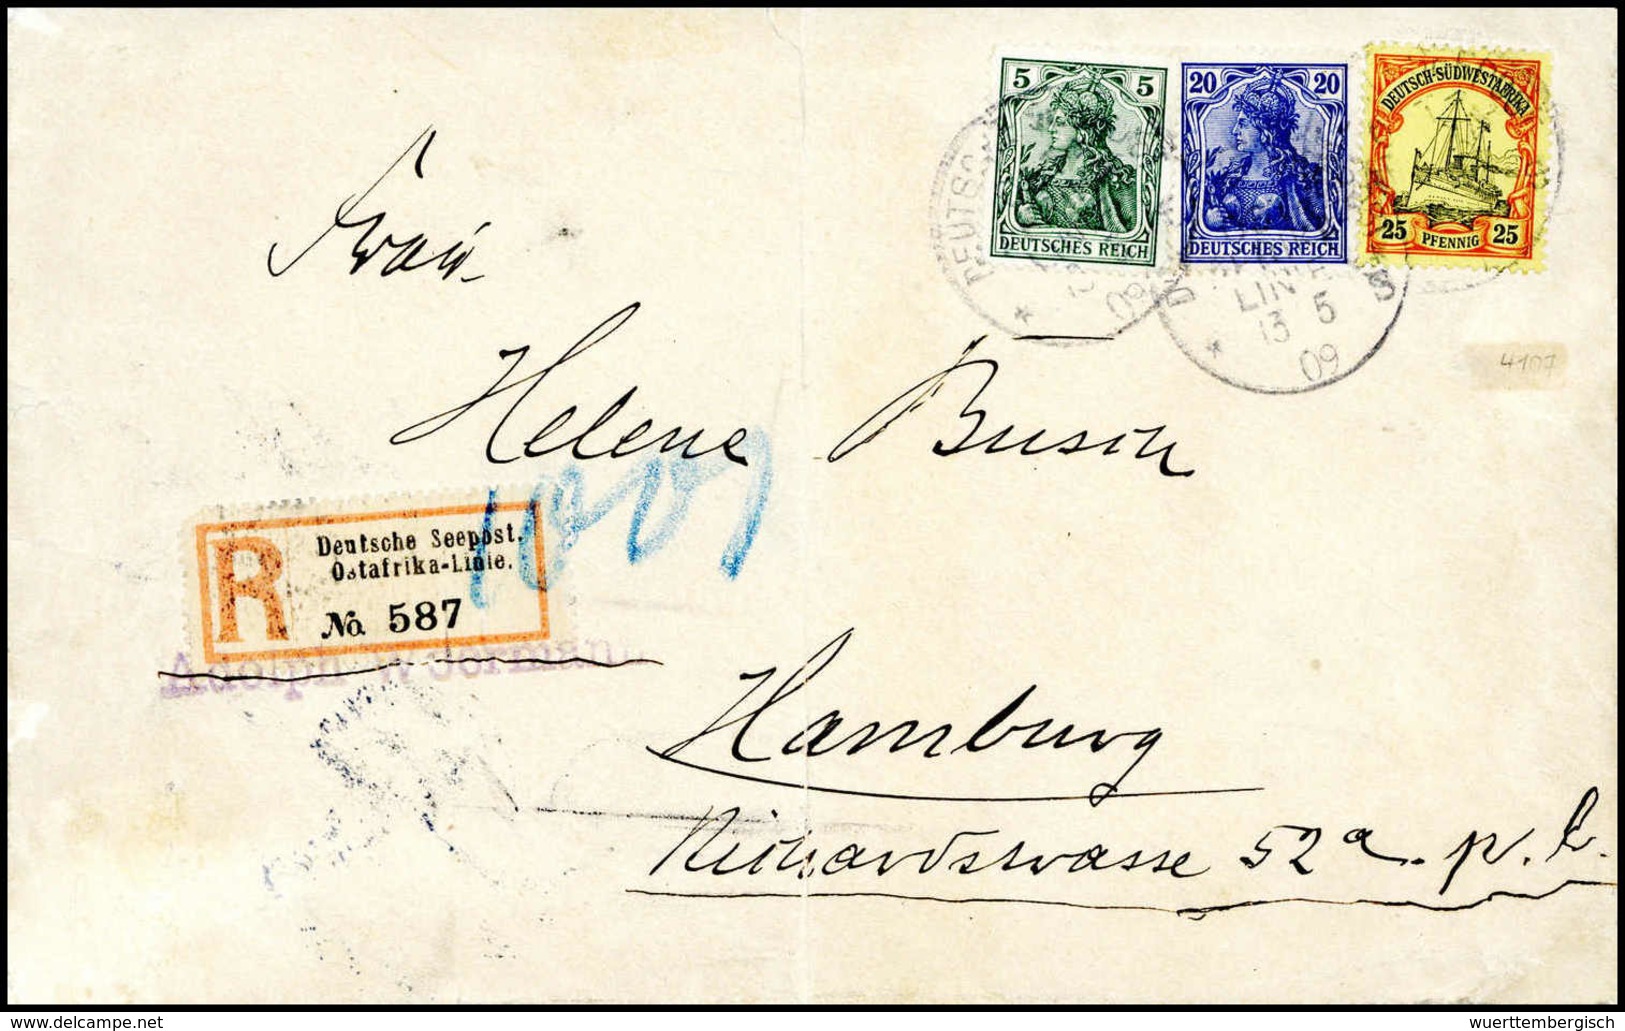 5 5
DEUTSCHES REICH
20 20
DEUTSCHES REICH
DEUTSCH-SÜDWESTAFRIKA
25 PFENNIG 25
DEUTSC
LINIE
* 13 5
09
4107
Frau
Helene Busch
R
Deutsche Seepost.
Ostafrika-Linie.
No 587
Adolph Woermann
Hamburg
Richardstrasse 52a. p. l.
delcampe.net
wuerttembergisch